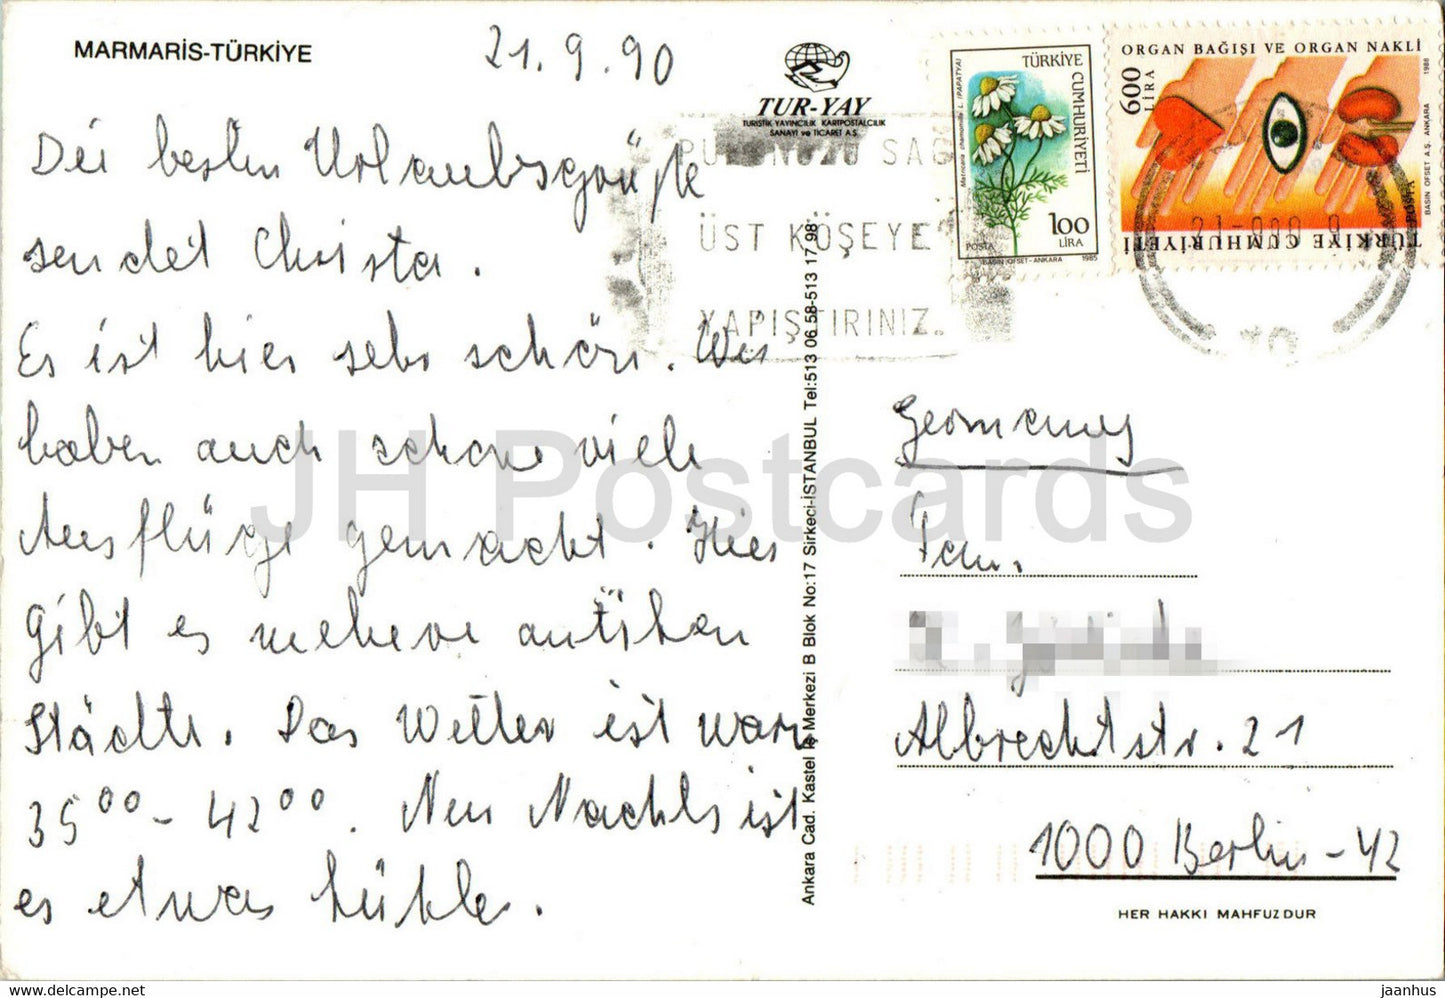 MARMARİS-TÜRKİYE
21.9.90
Die besten Urlaubsgrüße
sendet Christa.
Es ist hier sehr schön. Wir
haben auch schon viele
Ausflüge gemacht. Hier
gibt es mehrere antiken
Städte. Das Wetter ist warm
35⁰⁰ - 42⁰⁰. Nur Nachts ist
es etwas kühler.
TUR-YAY
TURİSTİK-YAYINCILIK KARTPOSTALCILIK
SANAYİ ve TİCARET A.Ş.
SAĞ
ÜST KÖŞEYE
YAPIŞTIRINIZ.
TÜRKİYE CUMHURİYETİ
Matricaria chamomilla L. (PAPATYA)
100
LİRA
POSTA
BASIN OFSET-ANKARA 1985
ORGAN BAĞIŞI VE ORGAN NAKLİ
600
LİRA
BASIN OFSET A.Ş. ANKARA 1986
POSTA
TÜRKİYE CUMHURİYETİ
Ankara Cad. Kastel İş Merkezi B Blok No:17 Sirkeci-İSTANBUL Tel:513 06 58-513 17 98
Germany
Fam.
Albrechtstr. 21
1000 Berlin-42
HER HAKKI MAHFUZDUR
JH Postcards
jaanhus